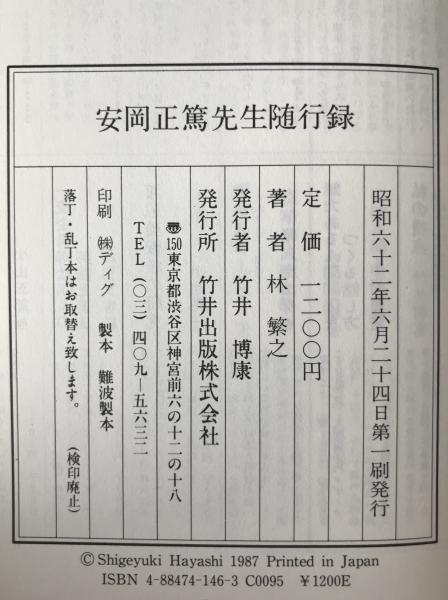 安岡正篤先生随行録
昭和六十二年六月二十四日第一刷発行
定価 一二〇〇円
著者 林 繁之
発行者 竹井 博康
発行所 竹井出版株式会社
〠150東京都渋谷区神宮前六の十二の十八
TEL(〇三)四〇九—五六三二
印刷 ㈱ディグ 製本 難波製本
落丁・乱丁本はお取替え致します。 (検印廃止)
©Shigeyuki Hayashi 1987 Printed in Japan
ISBN 4-88474-146-3 C0095 ¥1200E